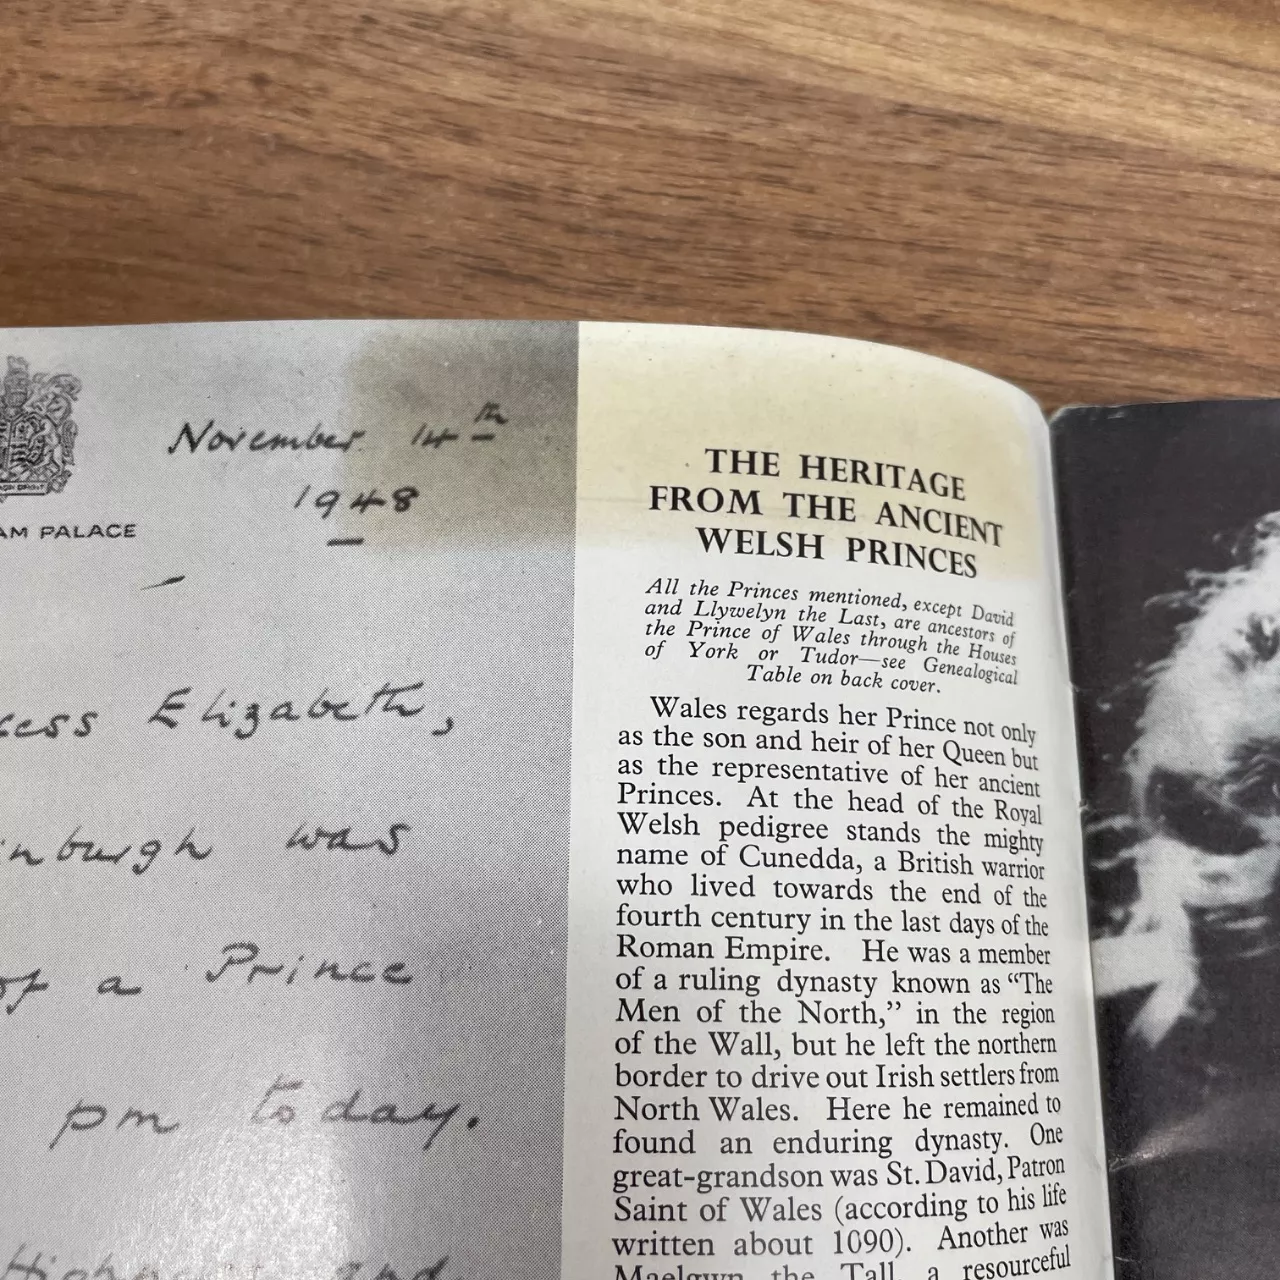 November 14th
1948
AM PALACE
cess Elizabeth,
nburgh was
of a Prince
pm today.
and
THE HERITAGE
FROM THE ANCIENT
WELSH PRINCES
All the Princes mentioned, except David
and Llywelyn the Last, are ancestors of
the Prince of Wales through the Houses
of York or Tudor—see Genealogical
Table on back cover.
Wales regards her Prince not only
as the son and heir of her Queen but
as the representative of her ancient
Princes. At the head of the Royal
Welsh pedigree stands the mighty
name of Cunedda, a British warrior
who lived towards the end of the
fourth century in the last days of the
Roman Empire. He was a member
of a ruling dynasty known as “The
Men of the North,” in the region
of the Wall, but he left the northern
border to drive out Irish settlers from
North Wales. Here he remained to
found an enduring dynasty. One
great-grandson was St. David, Patron
Saint of Wales (according to his life
written about 1090). Another was
Maelgwn the Tall, a resourceful